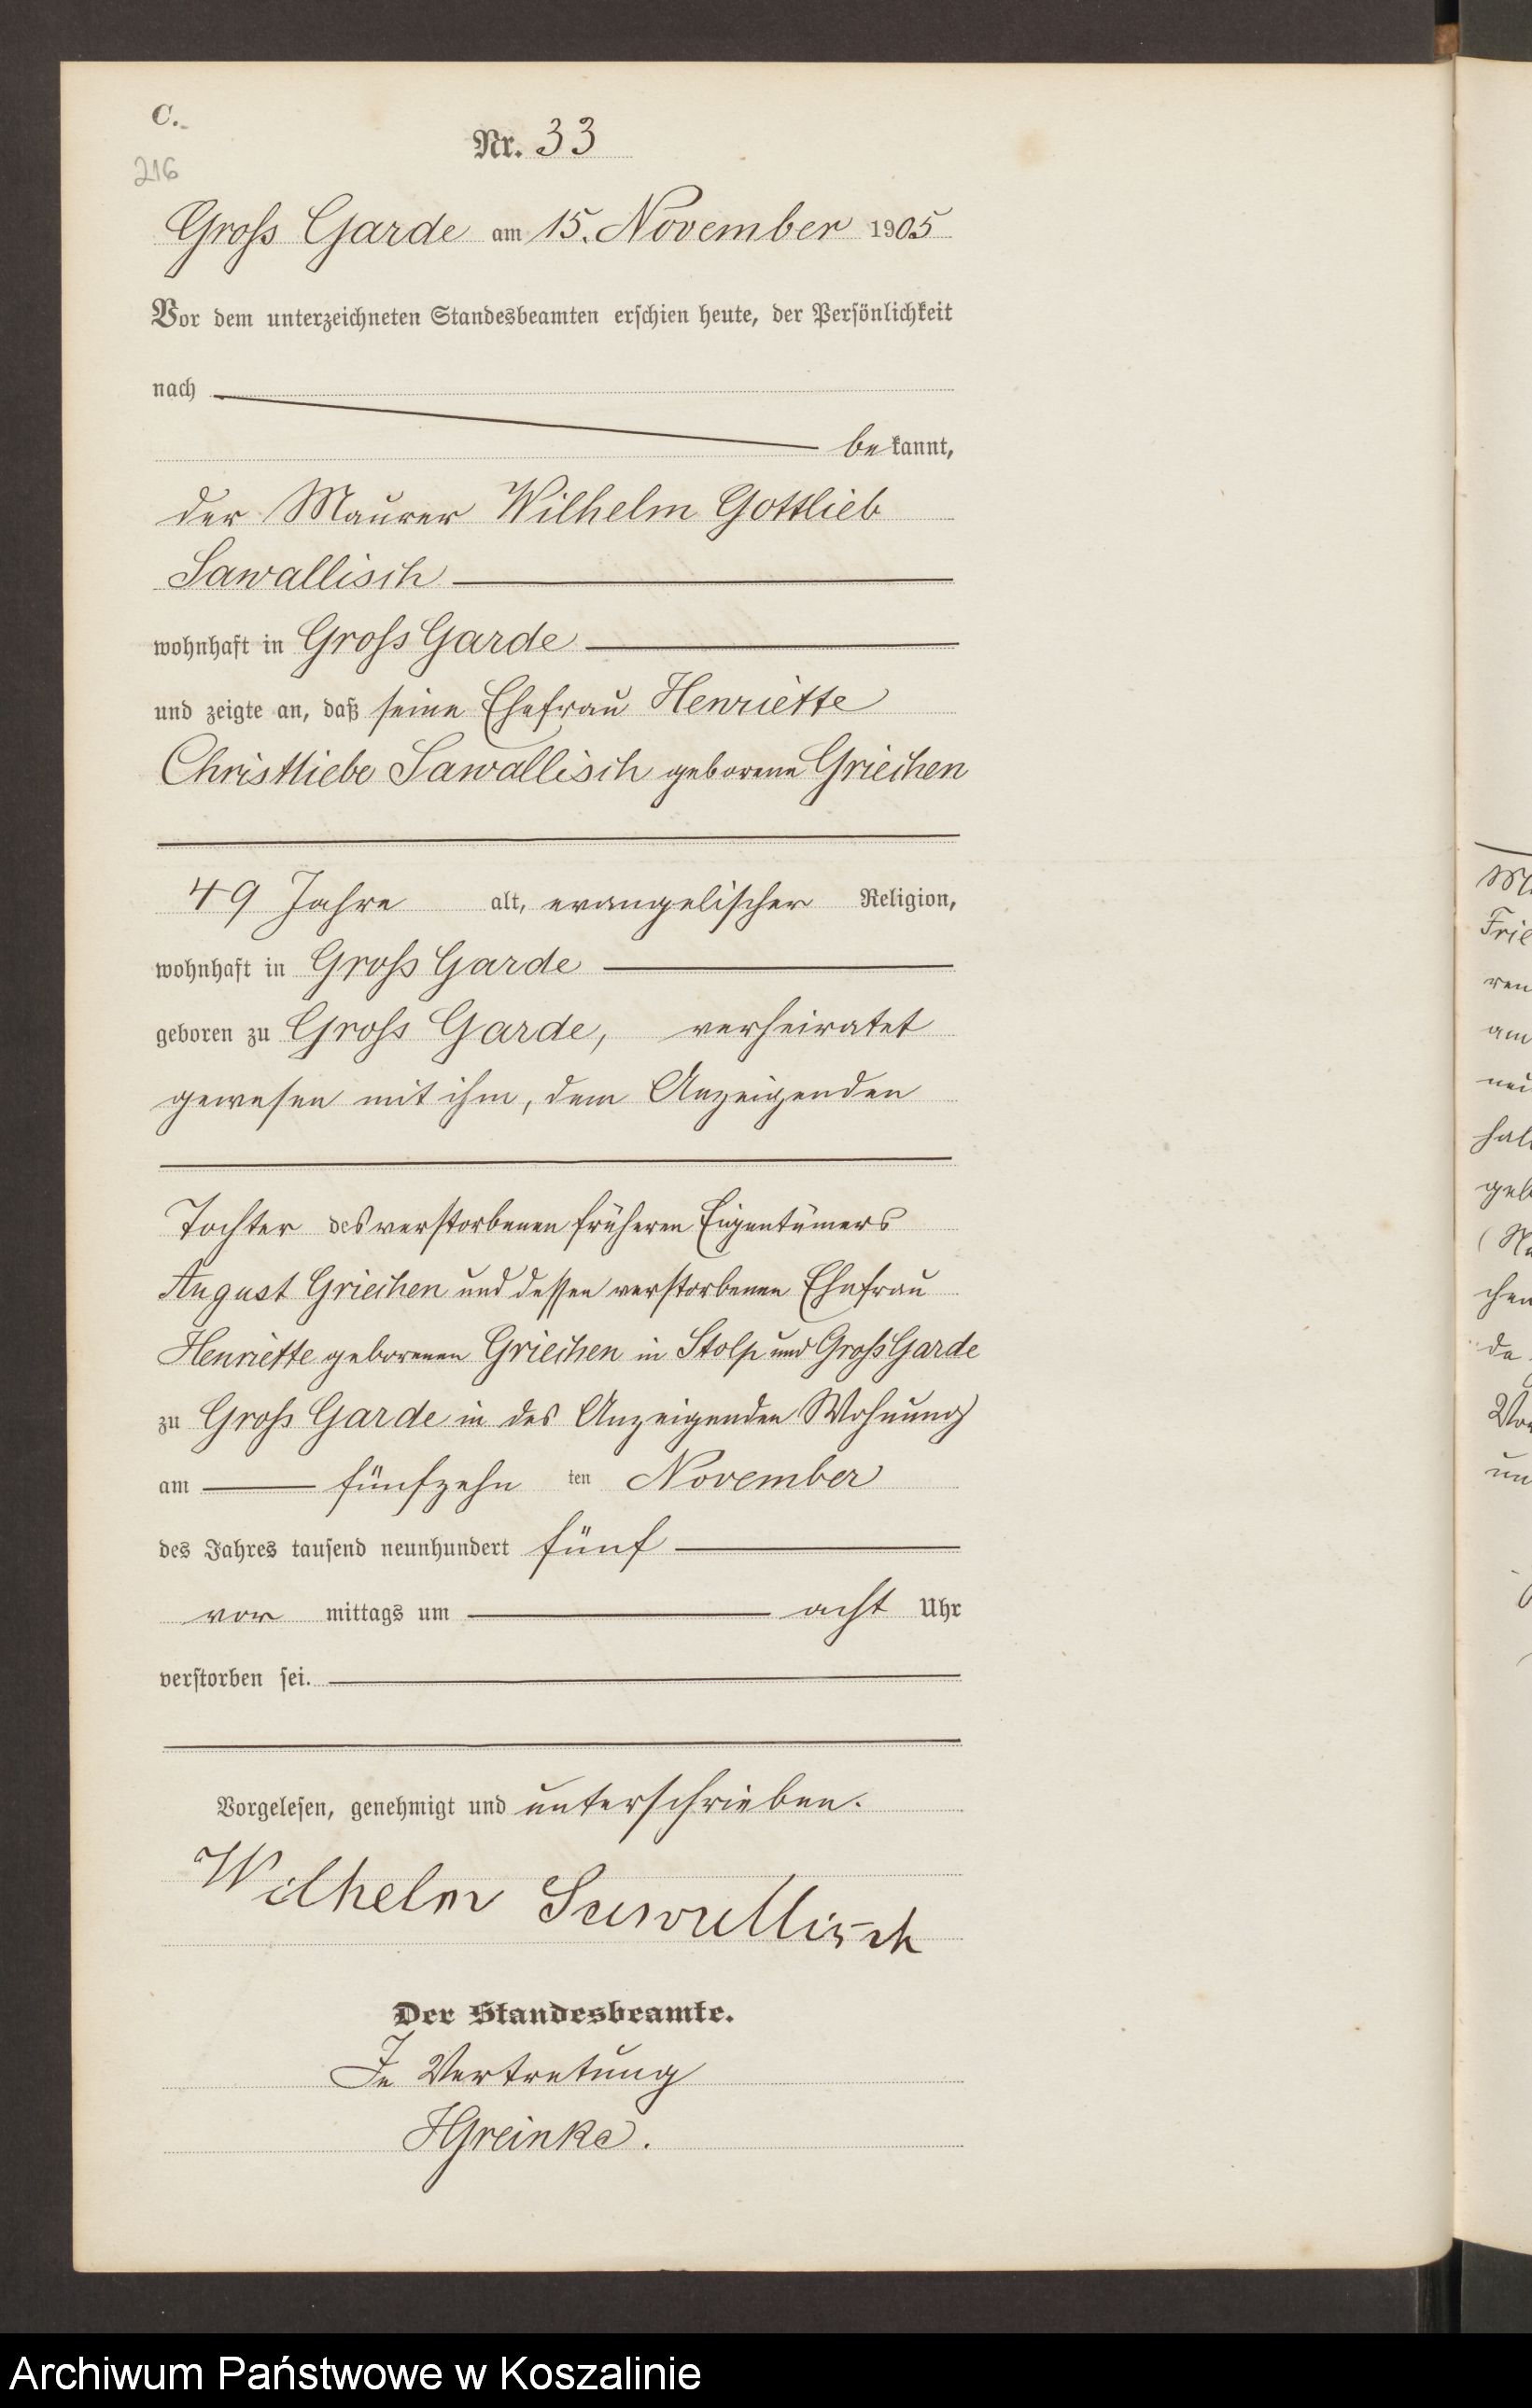 C.
Nr. 33
216
Groß Garde am 15. November 1905
Vor dem unterzeichneten Standesbeamten erschien heute, der Persönlichkeit
nach
bekannt,
der Maurer Wilhelm Gottlieb
Sawallisch
wohnhaft in Groß Garde
und zeigte an, daß seine Ehefrau Henriette
Christliebe Sawallisch geborene Griechen
49 Jahre alt, evangelischer Religion,
wohnhaft in Groß Garde
geboren zu Groß Garde, verheiratet
gewesen mit ihm, dem Anzeigenden
Tochter des verstorbenen früheren Eigentümers
August Griechen und dessen verstorbenen Ehefrau
Henriette geborenen Griechen in Stolp und Groß Garde
zu Groß Garde in des Anzeigenden Wohnung
am fünfzehn ten November
des Jahres tausend neunhundert fünf
vor mittags um acht Uhr
verstorben sei.
Vorgelesen, genehmigt und unterschrieben.
Wilhelm Sawallisch
Der Standesbeamte.
In Vertretung
HGreinke.
Archiwum Państwowe w Koszalinie